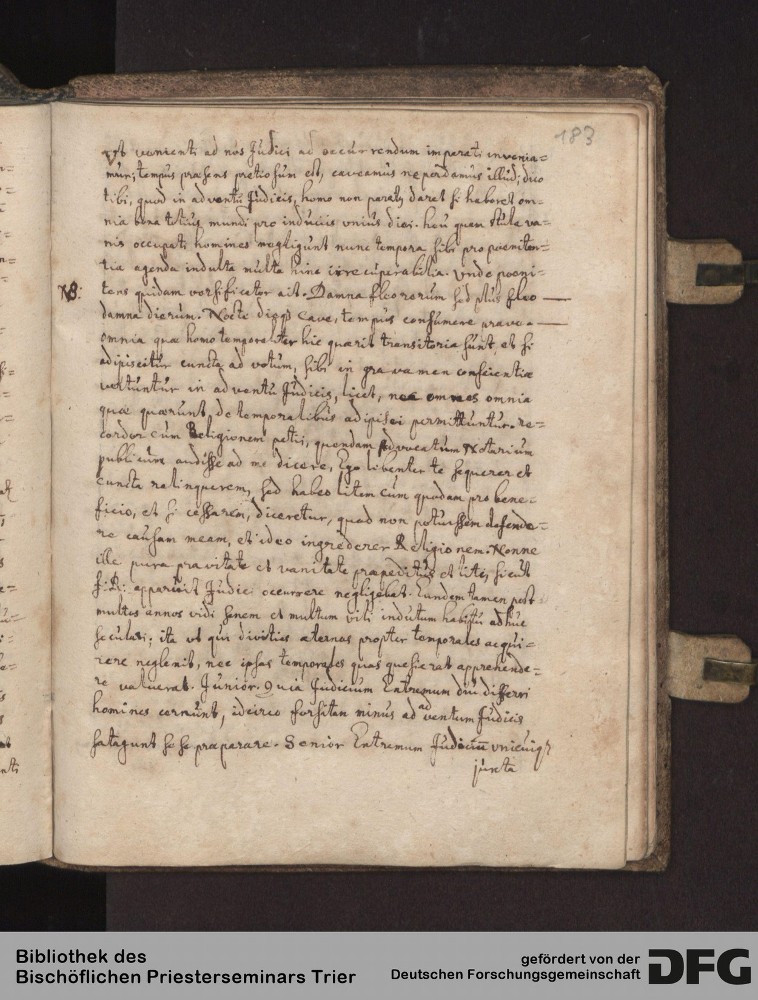 183
Ut venienti ad nos Judici ad occurrendum imparati invenia=
mur; tempus præsens pretiosum est, caveamus ne perdamus illud; dico
tibi, quod in adventu Judicis, homo non paratus daret si haberet om=
nia bona totius mundi pro induciis unius diei. heu quam stula va=
nis occupati homines negligunt nunc tempora sibi pro poeniten=
tia agenda indulta multa hinc irrecuperabilia. Unde poeni=
NB: tens quidam versificator ait. Damna fleo rerum sed plus fleo
damna dierum. Nocte dieqz cave, tempus consumere prave
omnia quæ homo temporaliter hic quærit transitoria sunt, et si
adipiscitur cuncta ad votum, sibi in gravamen conscientiæ
vertuntur in adventu Judicis, licet, nec omnes omnia
quæ quærunt de temporalibus adipisci permittuntur. re=
cordor cum Religionem petii, quendam Advocatum Notarium
publicum audisse ad me dicere, Ego libenter te sequerer et
cuncta relinquerem, sed habeo litem cum quodam pro bene=
ficio, et si cessarem, diceretur, quod non potuissem defende=
re causam meam, et ideo ingrederer Religionem. Nonne
ille pura pravitate et vanitate præpeditus et lite, sicut
sibi apparuit Judici occurrere negligebat. Eundem tamen post
multos annos vidi senem et multum vili indutum habitu adhuc
seculari; ita ut qui divitias æternas propter temporales acqui=
rere neglexit, nec ipsas temporales quas quesierat apprehende=
re valuerat. Junior. Quia Judicium Extremum diu differri
homines cernunt, idcirco forsitan minus ad adventum Judicis
satagunt se se præparare. Senior Extremum Judicium unicuiqz
juxta
Bibliothek des
Bischöflichen Priesterseminars Trier
gefördert von der
Deutschen Forschungsgemeinschaft
DFG